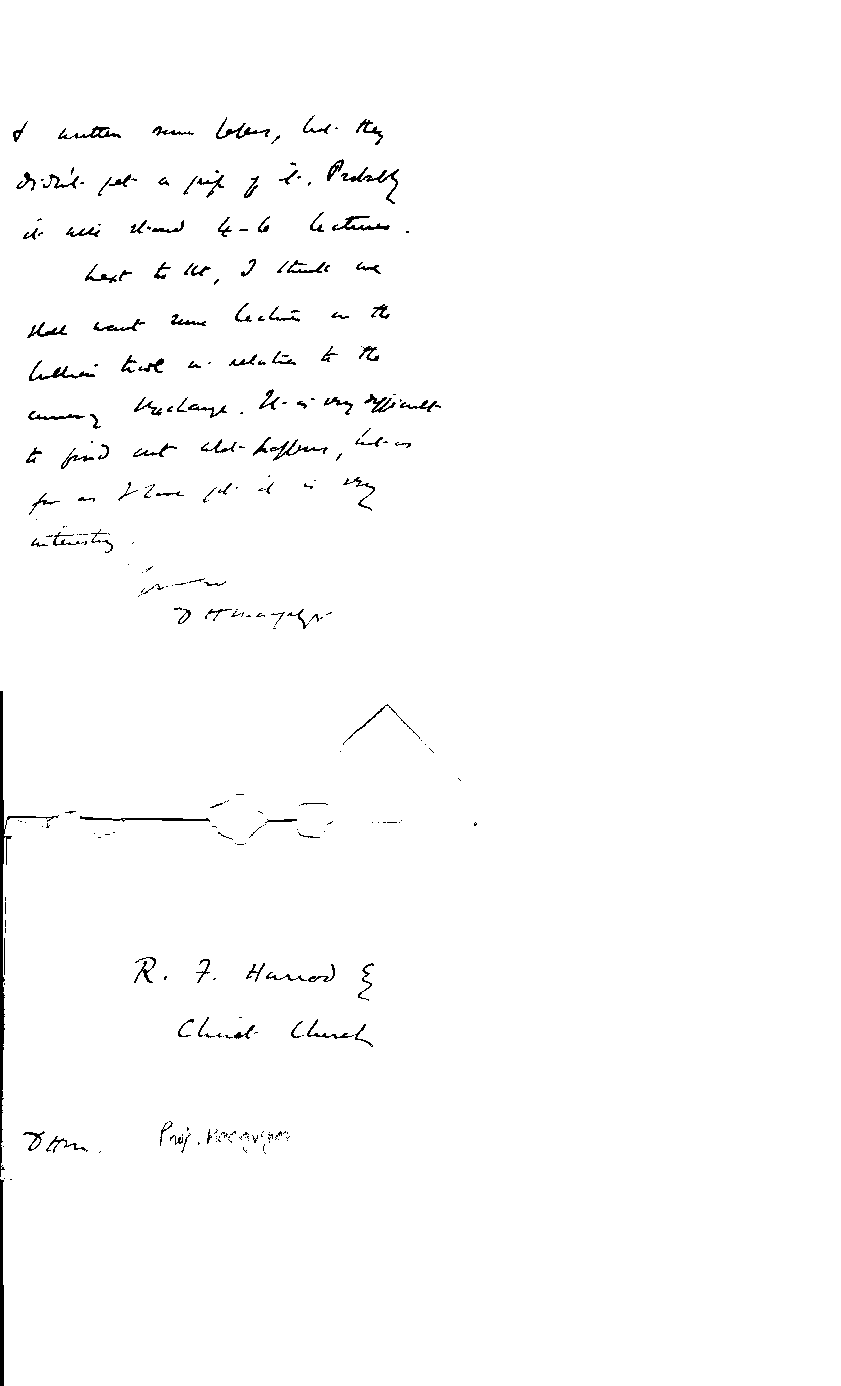 & written some letters, but they
didn't get a grip of it. Probably
it will stand 4-6 lectures.
Next to it, I think we
shall want some lectures on the
bullion trade in relation to the
currency exchange. It is very difficult
to find out what happens, but as
far as I have got it is very
interesting.
Yours
D H Macgregor
R. F. Harrod Esq
Christ Church
DHM. Prof. Macgregor